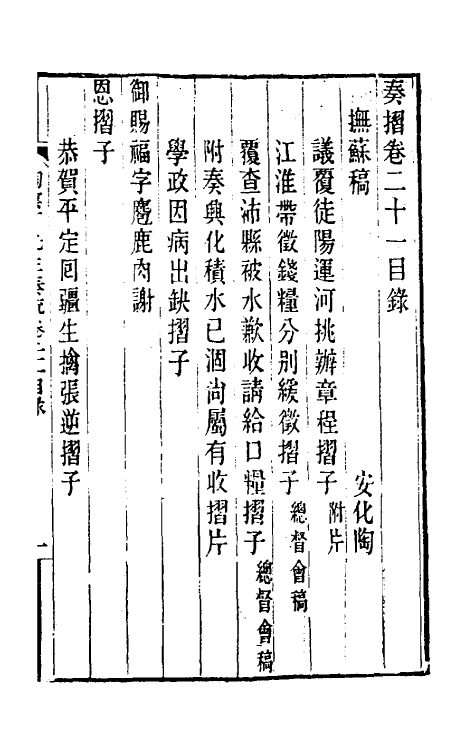 奏摺卷二十一目錄
撫蘇稿 安化陶
議覆徒陽運河挑辦章程摺子 附片
江淮帶徵錢糧分別緩徵摺子 總督會稿
覆查沛縣被水歉收請給口糧摺子 總督會稿
附奏興化積水已涸尚屬有收摺片
學政因病出缺摺子
御賜福字麅鹿肉謝
恩摺子
恭賀平定回疆生擒張逆摺子